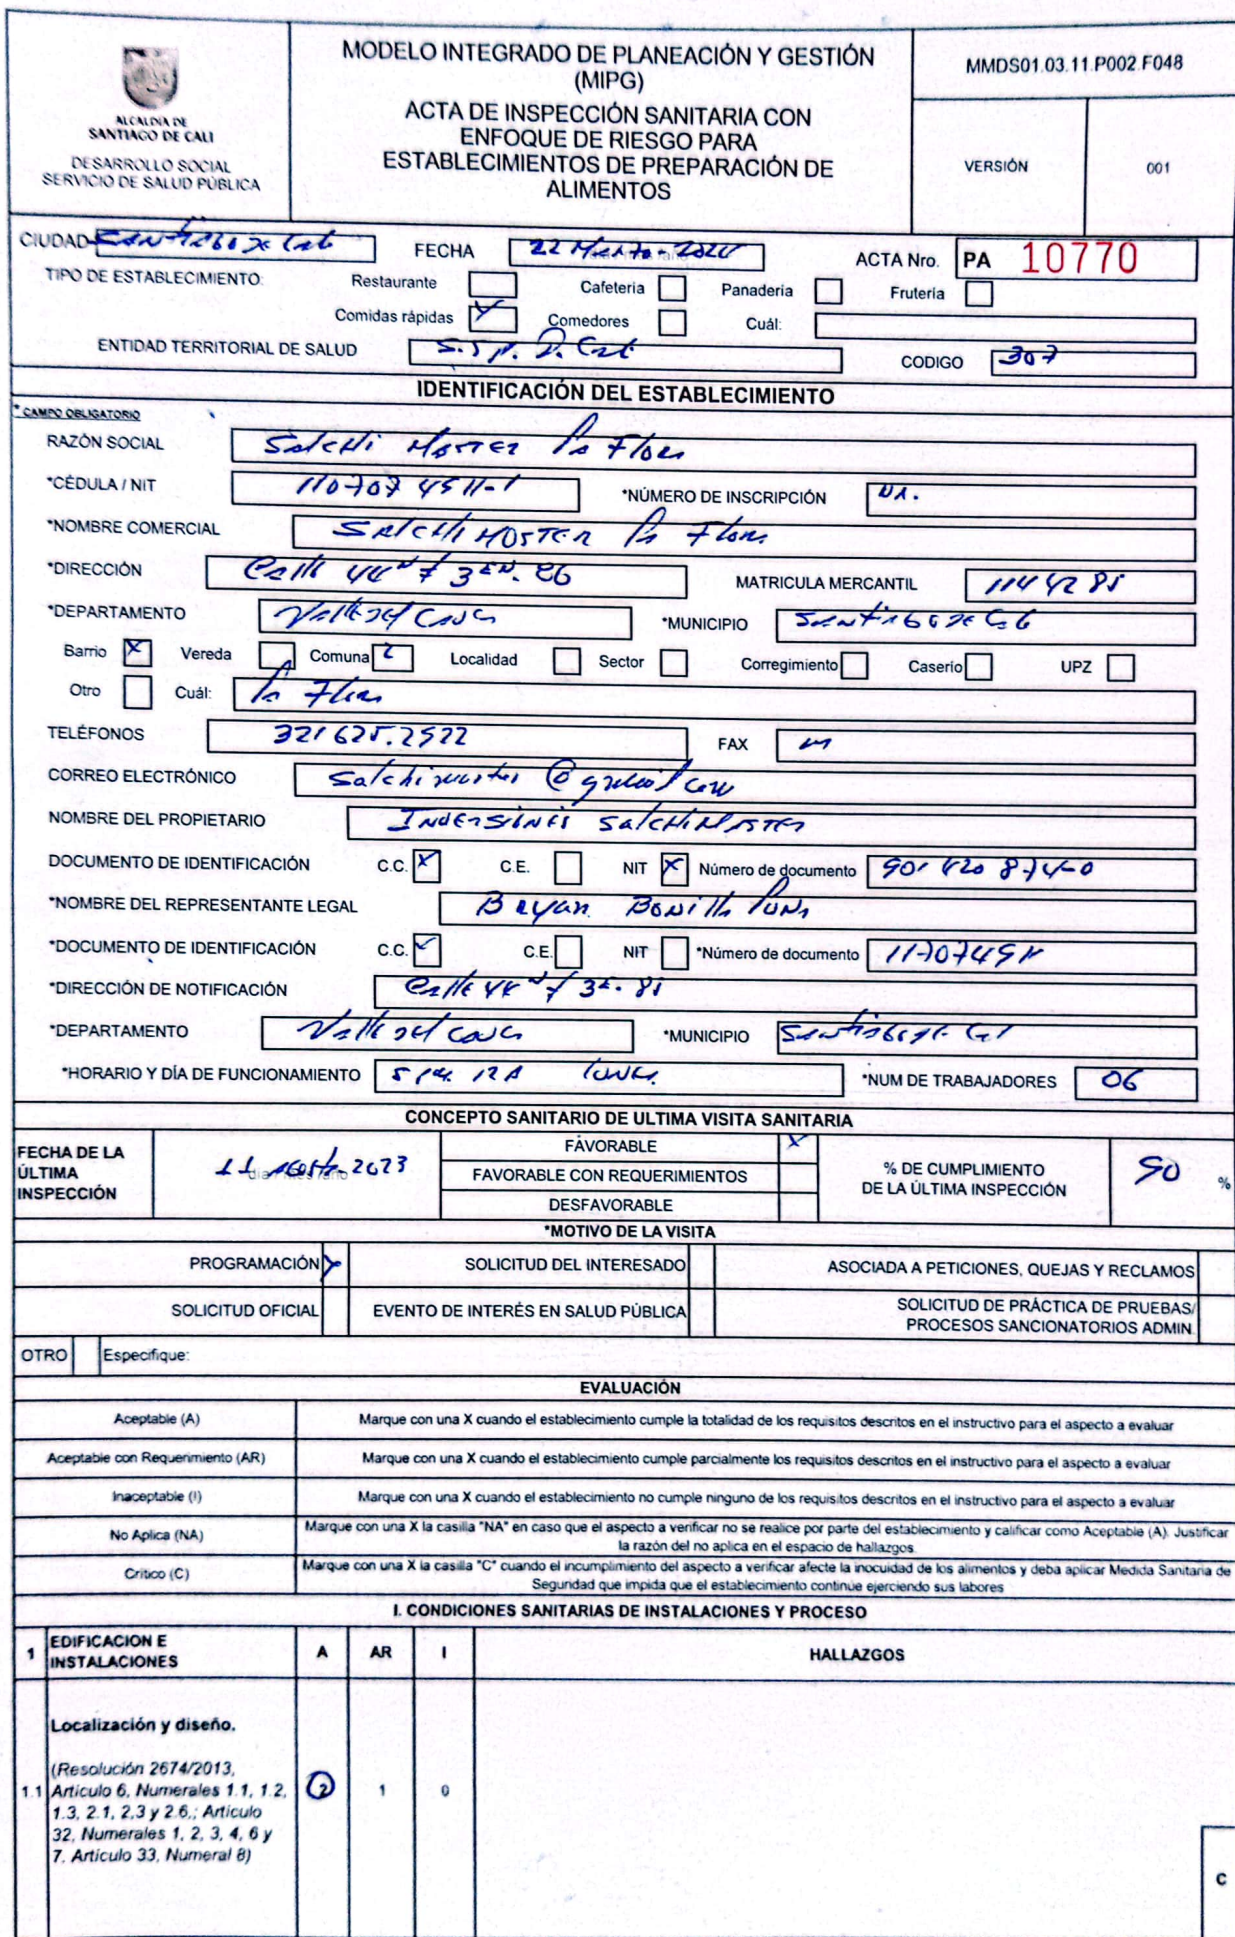 ALCALDÍA DE
SANTIAGO DE CALI
DESARROLLO SOCIAL
SERVICIO DE SALUD PÚBLICA
MODELO INTEGRADO DE PLANEACIÓN Y GESTIÓN
(MIPG)
ACTA DE INSPECCIÓN SANITARIA CON
ENFOQUE DE RIESGO PARA
ESTABLECIMIENTOS DE PREPARACIÓN DE
ALIMENTOS
MMDS01.03.11.P002.F048
VERSIÓN 001
CIUDAD Santiago de Cali FECHA 22 Marzo-2024 ACTA Nro. PA 10770
TIPO DE ESTABLECIMIENTO: Restaurante Cafeteria Panaderia Fruteria
Comidas rápidas X Comedores Cuál:
ENTIDAD TERRITORIAL DE SALUD S.S.P. D. Cali CODIGO 307
IDENTIFICACIÓN DEL ESTABLECIMIENTO
* CAMPO OBLIGATORIO
RAZÓN SOCIAL Salchi Master La Flora
*CÉDULA / NIT 110707 4511-1 *NÚMERO DE INSCRIPCIÓN NA.
*NOMBRE COMERCIAL SALCHI MASTER La Flora
*DIRECCIÓN Calle 44N # 3EN. 86 MATRICULA MERCANTIL 1144285
*DEPARTAMENTO Valle del Cauca *MUNICIPIO Santiago de Cali
Barrio X Vereda Comuna 2 Localidad Sector Corregimiento Caserío UPZ
Otro Cuál: La Flora
TELÉFONOS 321 625.2522 FAX
CORREO ELECTRÓNICO salchimaster @ gmail com
NOMBRE DEL PROPIETARIO INVERSIONES SALCHIMASTER
DOCUMENTO DE IDENTIFICACIÓN C.C. X C.E. NIT X Número de documento 901 420 874-0
*NOMBRE DEL REPRESENTANTE LEGAL Bryan Bonilla
*DOCUMENTO DE IDENTIFICACIÓN C.C. C.E. NIT *Número de documento
*DIRECCIÓN DE NOTIFICACIÓN Calle 44N # 3E. 85
*DEPARTAMENTO Valle del Cauca *MUNICIPIO Santiago de Cali
*HORARIO Y DÍA DE FUNCIONAMIENTO 5 pm. 12A *NUM DE TRABAJADORES 06
CONCEPTO SANITARIO DE ULTIMA VISITA SANITARIA
FECHA DE LA
ÚLTIMA
INSPECCIÓN
11 agosto 2023
FAVORABLE X
FAVORABLE CON REQUERIMIENTOS
DESFAVORABLE
% DE CUMPLIMIENTO
DE LA ÚLTIMA INSPECCIÓN
90 %
*MOTIVO DE LA VISITA
PROGRAMACIÓN X SOLICITUD DEL INTERESADO ASOCIADA A PETICIONES, QUEJAS Y RECLAMOS
SOLICITUD OFICIAL EVENTO DE INTERÉS EN SALUD PÚBLICA SOLICITUD DE PRÁCTICA DE PRUEBAS/
PROCESOS SANCIONATORIOS ADMIN.
OTRO Especifique:
EVALUACIÓN
Aceptable (A) Marque con una X cuando el establecimiento cumple la totalidad de los requisitos descritos en el instructivo para el aspecto a evaluar
Aceptable con Requerimiento (AR) Marque con una X cuando el establecimiento cumple parcialmente los requisitos descritos en el instructivo para el aspecto a evaluar
Inaceptable (I) Marque con una X cuando el establecimiento no cumple ninguno de los requisitos descritos en el instructivo para el aspecto a evaluar
No Aplica (NA) Marque con una X la casilla "NA" en caso que el aspecto a verificar no se realice por parte del establecimiento y calificar como Aceptable (A). Justificar
la razón del no aplica en el espacio de hallazgos.
Crítico (C) Marque con una X la casilla "C" cuando el incumplimiento del aspecto a verificar afecte la inocuidad de los alimentos y deba aplicar Medida Sanitaria de
Seguridad que impida que el establecimiento continue ejerciendo sus labores
I. CONDICIONES SANITARIAS DE INSTALACIONES Y PROCESO
1 EDIFICACION E
INSTALACIONES
A AR I HALLAZGOS
Localización y diseño.
(Resolución 2674/2013,
1.1 Artículo 6, Numerales 1.1, 1.2, 2 1 0
1.3, 2.1, 2,3 y 2.6,; Artículo
32, Numerales 1, 2, 3, 4, 6 y
7. Artículo 33, Numeral 8)
C